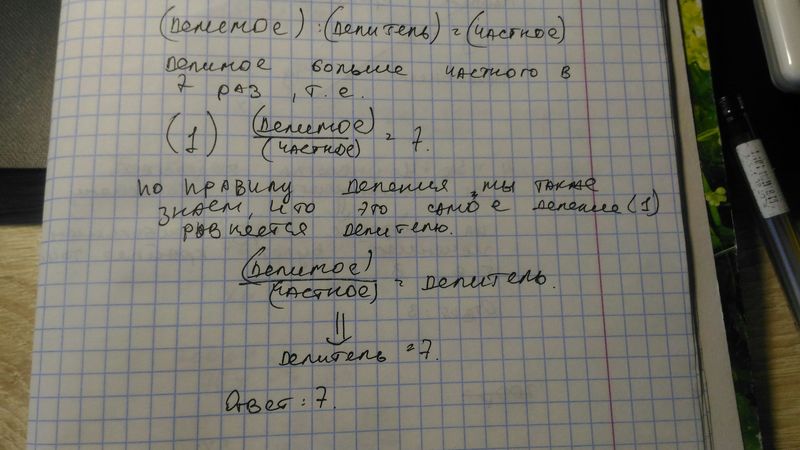 (Делимое) : (Делитель) = (частное)
Делимое больше частного в
7 раз, т.е.
(1) (Делимое)/(частное) = 7.
По правилу деления, мы также
знаем, что это самое деление (1)
равняется делителю.
(Делимое)/(частное) = Делитель.
⇓
Делитель = 7.
Ответ: 7.